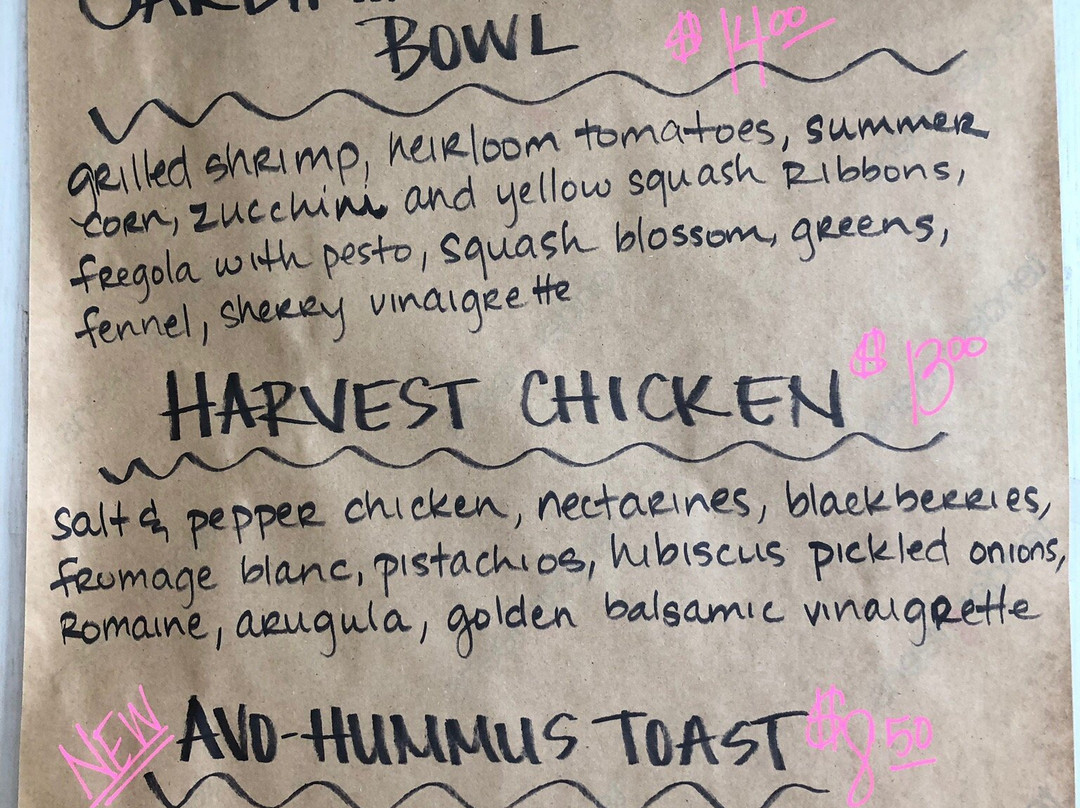 BOWL $14.00
grilled shrimp, heirloom tomatoes, summer
corn, zucchini and yellow squash Ribbons,
fregola with pesto, squash blossom, greens,
fennel, sherry vinaigrette
HARVEST CHICKEN $13.00
salt & pepper chicken, nectarines, blackberries,
fromage blanc, pistachios, hibiscus pickled onions,
Romaine, arugula, golden balsamic vinaigrette
NEW AVO-HUMMUS TOAST $8.50